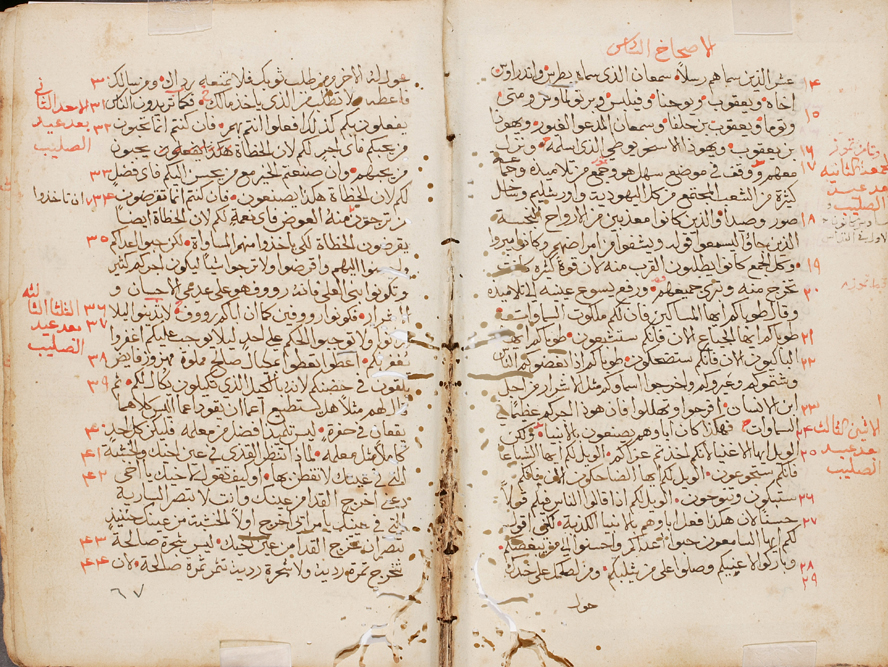 الاصحاح السادس
عشر الذين سماهم رسلا سمعان الذي سماه بطرس واندراوس
اخاه ويعقوب ويوحنا وفيلبس وبرتولماوس ومتى
وتوما ويعقوب بن حلفا وسمعان المدعو الغيور ويهوذا
بن يعقوب ويهوذا الاسخريوطي الذي اسلمه ونزل
معهم ووقف في موضع سهل هو وجمع من تلاميذه وجماعة
كثيرة من الشعب المجتمع من كل اليهودية واورشليم وساحل
صور وصيدا والذين كانوا معذبين من الارواح النجسة
الذين جاؤا ليسمعوا قوله ويشفوا من امراضهم وكانوا يبروا
وكل الجمع كانوا يطلبون القرب منه لان قوة كثيرة كانت
تخرج منه وتبري جميعهم ورفع يسوع عينيه الى تلاميذه
وقال طوباكم ايها المساكين فان لكم ملكوت السماوات
طوباكم ايها الجياع الان فانكم ستشبعون طوباكم ايها
الباكون الان فانكم ستضحكون طوباكم اذا ابغضوكم الناس
وشتموكم وعيروكم واخرجوا اسماوكم مثل الاشرار من اجل
ابن الانسان افرحوا وتهللوا فان هوذا اجركم عظيما في
السماوات فهكذا كان اباوهم يصنعون بالانبيا ولكن
الويل لكم ايها الاغنيا لانكم اخذتم عزاكم الويل لكم ايها الشباعا
فانكم ستجوعون الويل لكم ايها الضاحكون الان فانكم
ستبكون وتنوحون الويل لكم اذا قالوا الناس فيكم قولا
حسنا لان هكذا فعل اباوهم بالانبيا الكذبة لكني اقول
لكم ايها السامعون حبوا اعداكم واحسنوا الى من يبغضكم
وباركوا لاعنيكم وصلوا على من يثلبكم ومن لطمك على خدك
حول
١٤
١٥
١٦
١٧
١٨
١٩
٢٠
٢١
٢٢
٢٣
٢٤
٢٥
٢٦
٢٧
٢٨
٢٩
الاثنين الثالث
بعد عيد
الصليب
حول له الاخر ومن طلب ثوبك فلا تمنعه رداك ومن سالك
فاعطه ولا تطلب من الذي ياخذ مالك فكما تريدون الناس
يفعلون بكم كذلك افعلوا انتم بهم فان كنتم انما تحبون
من يحبكم فاي اجر لكم لان الخطاة هكذا يفعلون يحبون
من يحبهم وان صنعتم الخير مع من يحسن اليكم فاي فضل
لكم لان الخطاة هكذا يصنعون فان كنتم انما تقرضون ان تاخذوا
من ترجون منه العوض فاي نعمة لكم لان الخطاة ايضا
يقرضون الخطاة لكي ياخذوا منهم المساواة لكن حبوا اعداكم
واحسنوا اليهم واقرضوا ولا ترجوا شيا ليكون اجركم كثير
وتكونوا بني العلي فانه رووف هو على عدمي الاحسان و
الاشرار فكونوا رووفين كما ان ابيكم رووف لا تدينوا ليلا
تدانوا ولا توجبوا الحكم على احد ليلا يوجب عليكم اغفروا
يغفر لكم اعطوا تعطوا بمكيال صالح مملوة مهزوز فايض
يلقون في حضنكم لانه بالكيل الذي تكيلون يكال لكم ثم
قال لهم مثلا هل يستطيع اعما ان يقود اعما اليس كلاهما
يقعان في حفرة ليس تلميذ افضل من معلمه فليكن كل احد
كاملا مثل معلمه لماذا تنظر القذى في عين اخيك والخشبة
التي في عينك لا تفطن بها او كيف تقول لاخيك يا اخي
دعني اخرج القذا من عينك وانت لا تبصر السارية
التي في عينك يا مرائي اخرج اولا الخشبة من عينك حينيذ
تبصر ان تخرج القذا من عين اخيك ليس شجرة صالحة
تخرج ثمرة ردية ولا شجرة ردية تثمر ثمرة صالحة لان
٣٠
٣١
٣٢
٣٣
٣٤
٣٥
٣٦
٣٧
٣٨
٣٩
٤٠
٤١
٤٢
٤٣
٤٤
الاحد الثاني
بعد عيد
الصليب
الثلثا الثالثه
بعد عيد
الصليب
٦٧